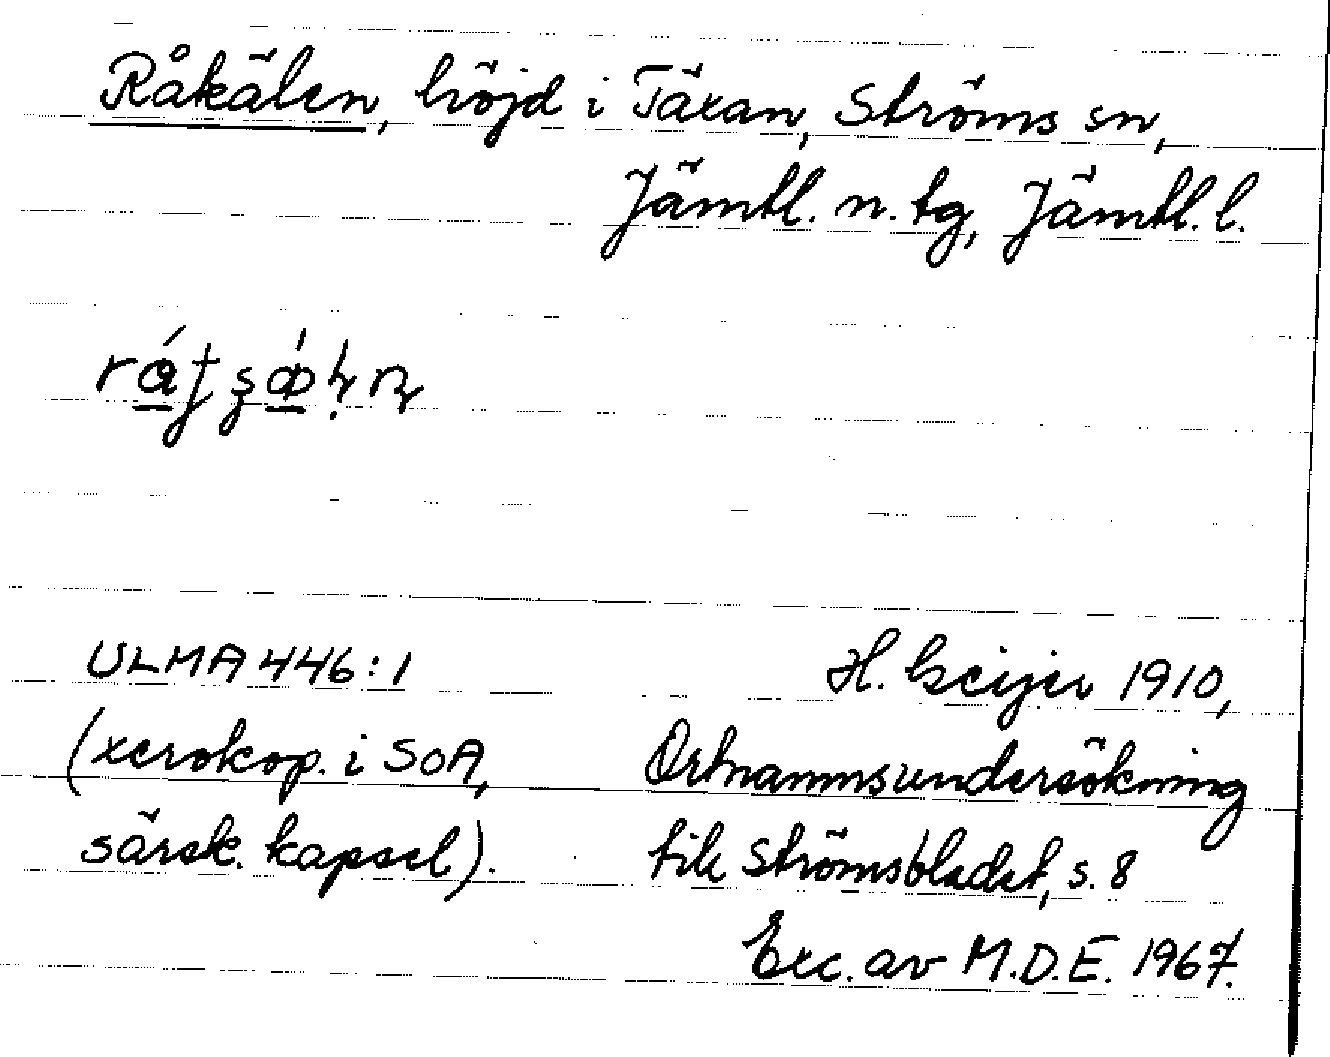 Råkälen, höjd i Täxan, Ströms sn,
Jämtl. n. tg, Jämtl. l.
ULMA 446:1
H. Geijer 1910,
(xerokop. i SOA,
Ortnamnsundersökning
särsk. kapsel).
till Strömsbladet, s. 8
Exc. av M.D.E. 1967.